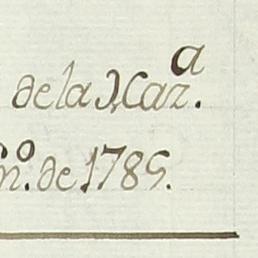 de la Maz.ª
n.º de 1789.